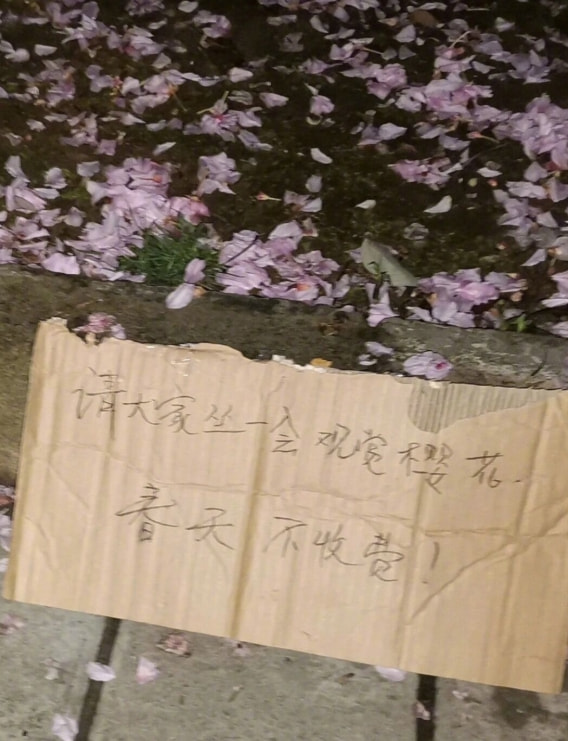 请大家丛一会观赏樱花.
春天不收费!